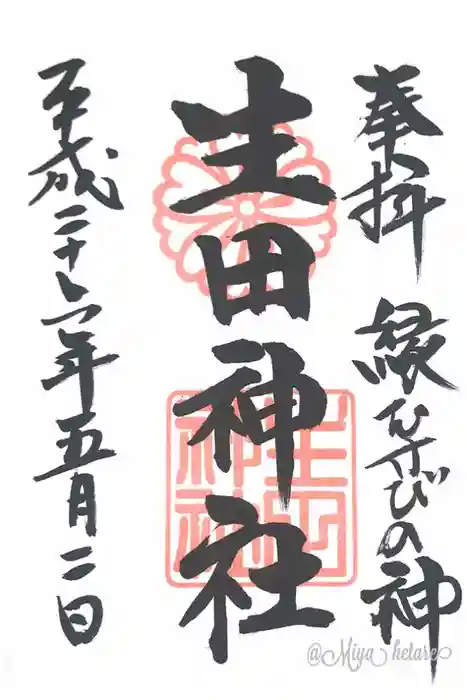 奉拝 縁むすびの神
生田神社
平成二十六年五月二日
生田
神社
@Miya hetare